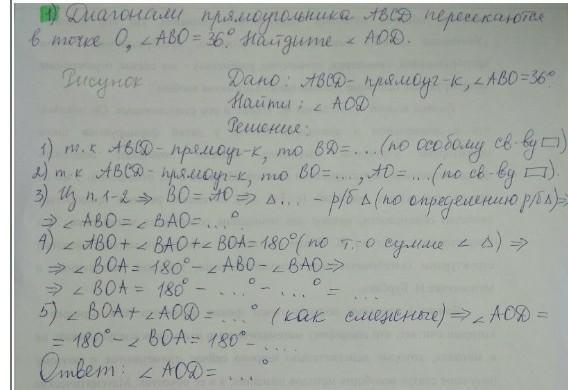 1) Диагонали прямоугольника ABCD пересекаются
в точке O, ∠ABO = 36°. Найдите ∠AOD.
Рисунок Дано: ABCD - прямоуг-к, ∠ABO=36°
Найти: ∠AOD
Решение:
1) т.к ABCD - прямоуг-к, то BD = ... (по особому св-ву ▭)
2) т.к ABCD - прямоуг-к, то BO = ..., AO = ... (по св-ву ▱).
3) Из п.1-2 ⇒ BO = AO ⇒ Δ... - р/б Δ (по определению р/б Δ) ⇒
⇒ ∠ABO = ∠BAO = ...°
4) ∠ABO + ∠BAO + ∠BOA = 180° (по т. о сумме ∠ Δ) ⇒
⇒ ∠BOA = 180° - ∠ABO - ∠BAO ⇒
⇒ ∠BOA = 180° - ...° - ...° = ...
5) ∠BOA + ∠AOD = ...° (как смежные) ⇒ ∠AOD =
= 180° - ∠BOA = 180° - ....
Ответ: ∠AOD = ...°